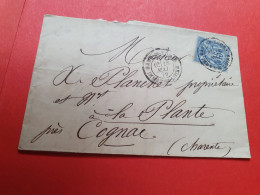 Monsieur
Planchet propriétaire
et Mt
à la Plante
près Cognac
(Charente)